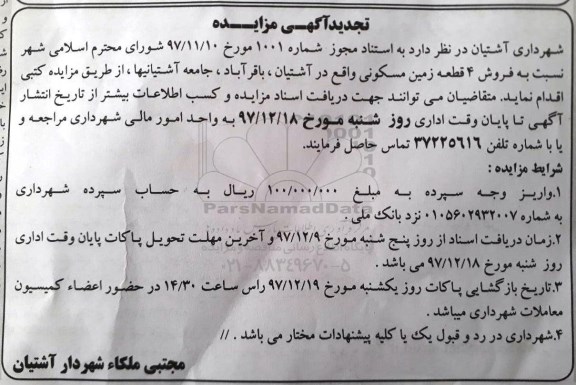 تجدیدآگهـی مزایـــده
شهرداری آشتیان در نظر دارد به استناد مجوز شماره ۱۰۰۱ مورخ ۹۷/۱۱/۱۰ شورای محترم اسلامی شهر
نسبت به فروش ۴ قطعه زمین مسکونی واقع در آشتیان ، باقرآباد ، جامعه آشتیانیها ، از طریق مزایده کتبی
اقدام نماید. متقاضیـان مـی توانند جهت دریافت اسناد مزایـده و کسب اطلاعات بیشتر از تاریخ انتشار
آگهـی تـا پایـان وقت اداری روز شنبه مـورخ ۹۷/۱۲/۱۸ به واحـد امور مالـی شهرداری مراجعه و
یا با شماره تلفن ۳۷۲۲۵۶۱۶ تماس حاصل فرمایند.
شرایط مزایده :
۱.واریـز وجـه سپرده به مبلـغ ۱۰۰/۰۰۰/۰۰۰ ریـال بـه حسـاب سپـرده شهـرداری
به شماره ۰۱۰۵۶۰۲۹۳۲۰۰۷ نزد بانک ملی .
۲.زمان دریافت اسناد از روز پنج شنبه مـورخ ۹۷/۱۲/۹ و آخریـن مهلـت تحویـل پـاکات پایان وقت اداری
روز شنبه مورخ ۹۷/۱۲/۱۸ می باشد .
۳.تاریخ بازگشایی پاکات روز یکشنبه مـورخ ۹۷/۱۲/۱۹ راس ساعت ۱۴/۳۰ در حضـور اعضـاء کمیسیون
معاملات شهرداری میباشد .
۴.شهرداری در رد و قبول یک یا کلیه پیشنهادات مختار می باشد . //
مجتبی ملکاء شهردار آشتیان
ParsNamadData
۰۲۱-۸۸۳۴۹۶۷۰-۵